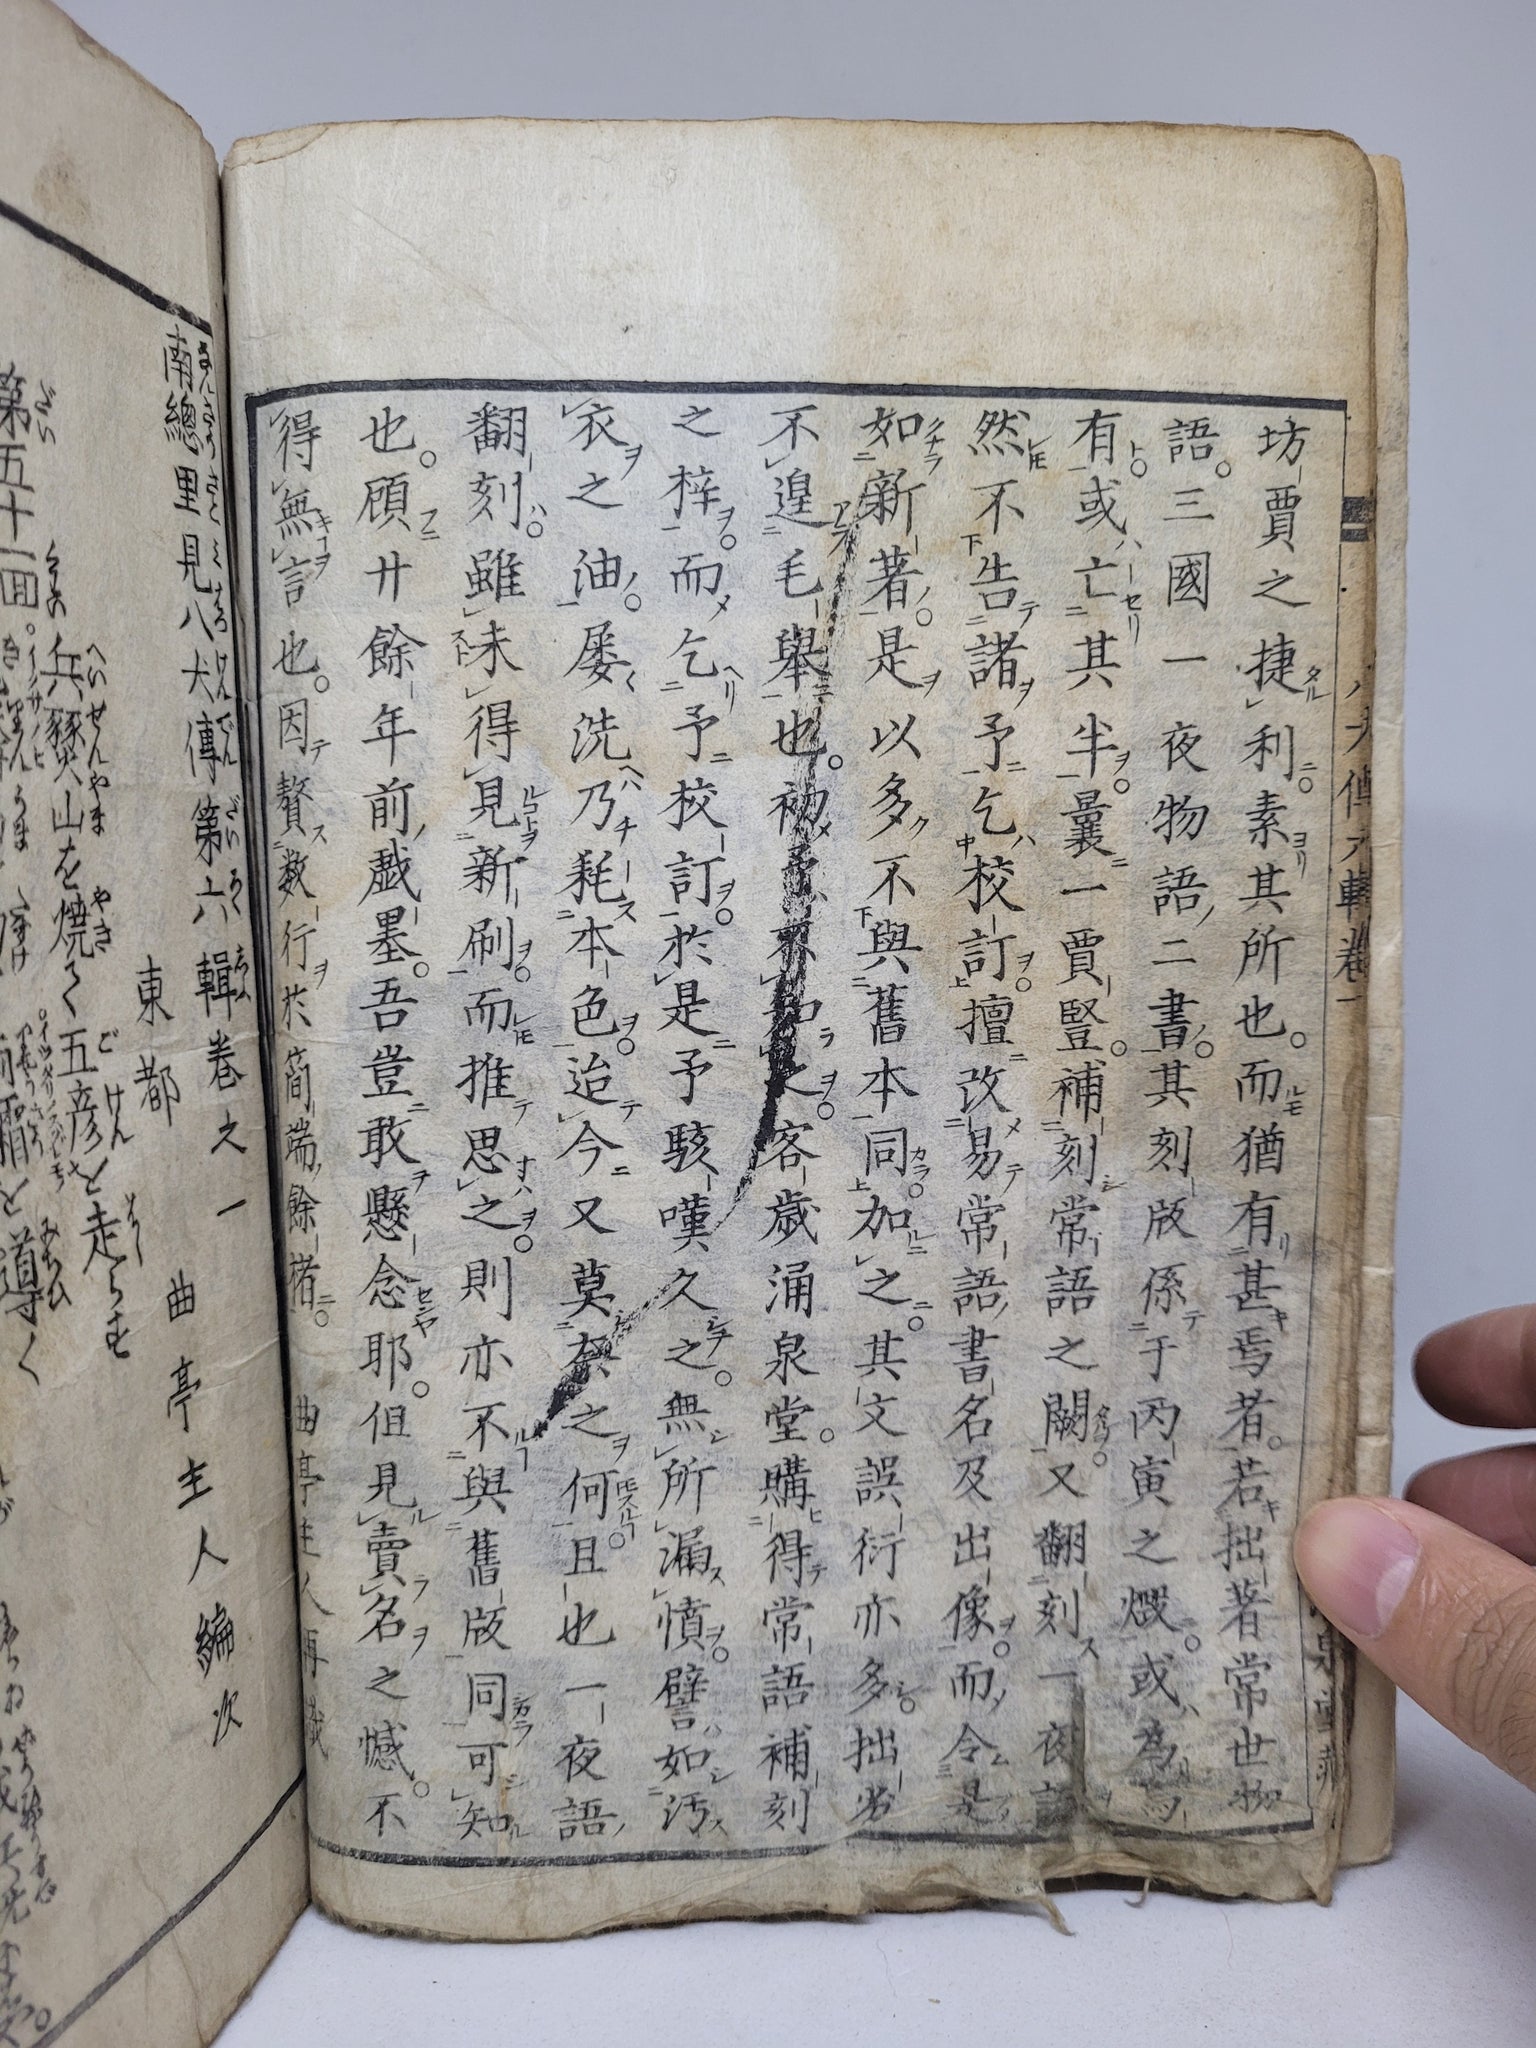 坊賈之捷利素其所也。而猶有甚焉者。若拙著常世物
語。三國一夜物語二書。其刻版係于丙寅之燬。或為
有。或亡其半。曩一賈豎。補刻常語之闕。又翻刻一夜語
然不告諸予乞校訂。擅改易常語書名及出像。而令是
如新著。是以多不與舊本同。加之。其文誤衍亦多。拙劣
不遑毛舉也。初予不知之。客歲涌泉堂。購得常語補刻
之梓。而乞予校訂。於是予駭嘆久之。無所漏憤。譬如汚
衣之油。屡洗乃耗本色。迨今又莫奈之何。且也一夜語
翻刻。雖未得見新刷。而推思之。則亦不與舊版同可知
也。顧廿餘年前戲墨。吾豈敢懸念耶。但見賣名之憾。不
得無言也。因贅数行於簡端餘楮。 曲亭主人再識
南總里見八犬傳第六輯卷之一
東都 曲亭主人編次
第五十一回。兵燹山を焼て五彦を走らす